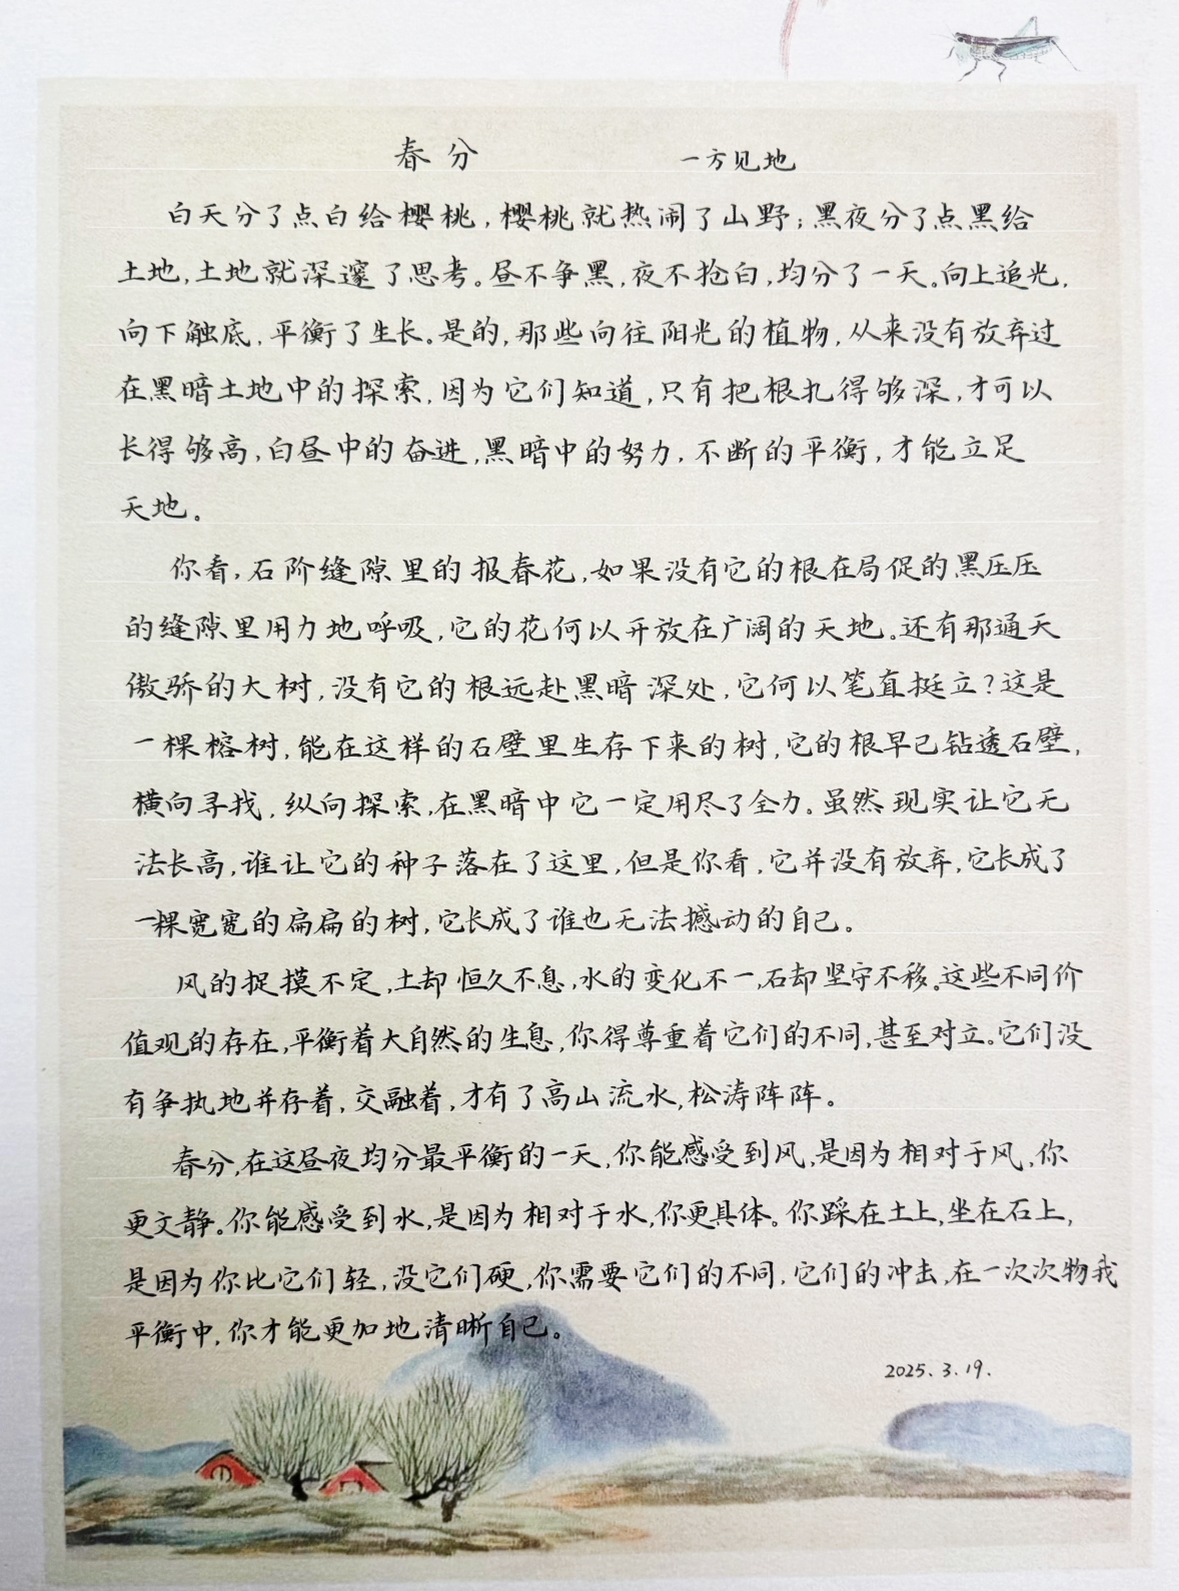 春分 一方见地
白天分了点白给樱桃,樱桃就热闹了山野;黑夜分了点黑给
土地,土地就深邃了思考。昼不争黑,夜不抢白,均分了一天。向上追光,
向下触底,平衡了生长。是的,那些向往阳光的植物,从来没有放弃过
在黑暗土地中的探索,因为它们知道,只有把根扎得够深,才可以
长得够高,白昼中的奋进,黑暗中的努力,不断的平衡,才能立足
天地。
你看,石阶缝隙里的报春花,如果没有它的根在局促的黑压压
的缝隙里用力地呼吸,它的花何以开放在广阔的天地。还有那通天
傲骄的大树,没有它的根远赴黑暗深处,它何以笔直挺立?这是
一棵榕树,能在这样的石壁里生存下来的树,它的根早已钻透石壁,
横向寻找,纵向探索,在黑暗中它一定用尽了全力。虽然现实让它无
法长高,谁让它的种子落在了这里,但是你看,它并没有放弃,它长成了
一棵宽宽的扁扁的树,它长成了谁也无法撼动的自己。
风的捉摸不定,土却恒久不息,水的变化不一,石却坚守不移。这些不同价
值观的存在,平衡着大自然的生息,你得尊重着它们的不同,甚至对立。它们没
有争执地并存着,交融着,才有了高山流水,松涛阵阵。
春分,在这昼夜均分最平衡的一天,你能感受到风,是因为相对于风,你
更文静。你能感受到水,是因为相对于水,你更具体。你踩在土上,坐在石上,
是因为你比它们轻,没它们硬,你需要它们的不同,它们的冲击,在一次次物我
平衡中,你才能更加地清晰自己。
2025.3.19.